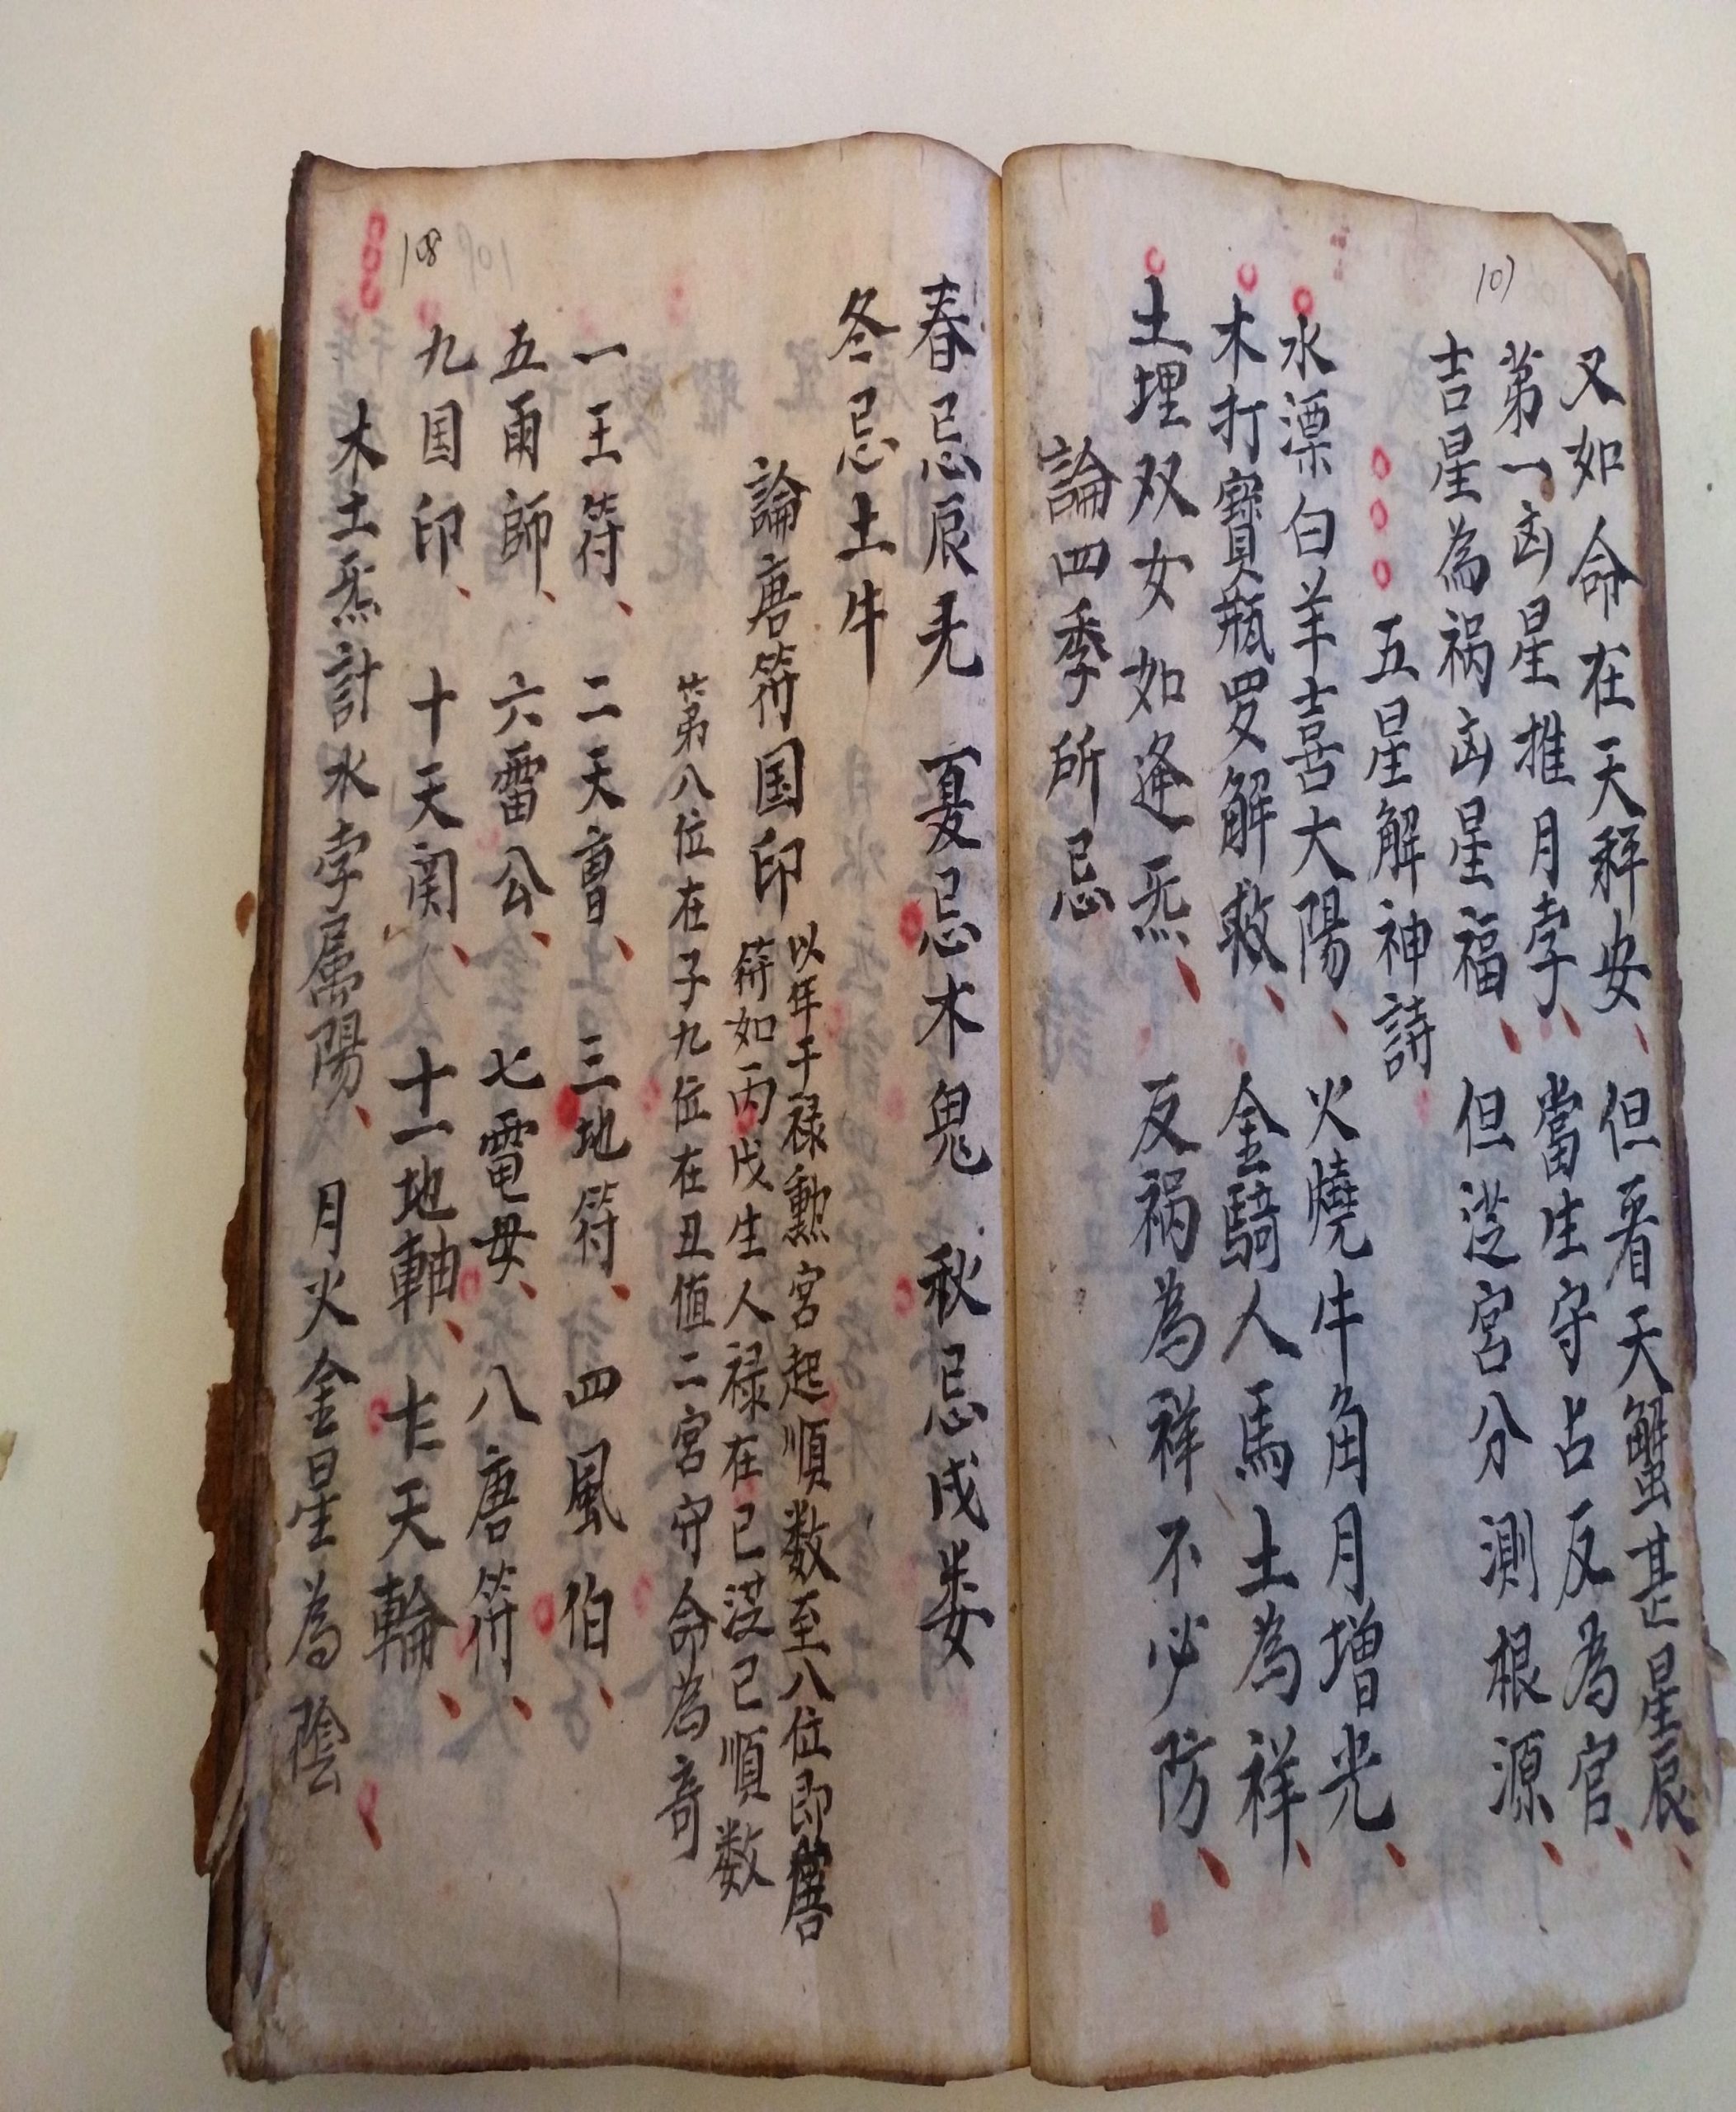 107
又如命在天秤安、但看天蟹甚星辰、
第一凶星推月孛、當生守占反為官、
吉星為祸凶星福、但從宮分測根源、
五星解神詩
水漂白羊喜大陽、火燒牛角月增光、
木打寶瓶罗解救、金騎人馬土為祥、
土埋双女如逢炁、反祸為祥不必防、
論四季所忌
春忌辰 夏忌木鬼 秋忌戌娄
冬忌土牛
論唐符国印 以年干禄勲宮起順数至八位即唐
符如丙戊生人禄在巳從巳順数
第八位在子九位在丑值二宮守命為奇
一王符、二天曹、三地符、四風伯、
五雨師、六雷公、七電母、八唐符、
108
九国印、十天関、十一地軸、十二天輪、
木土炁計水孛属陽、月火金星為陰